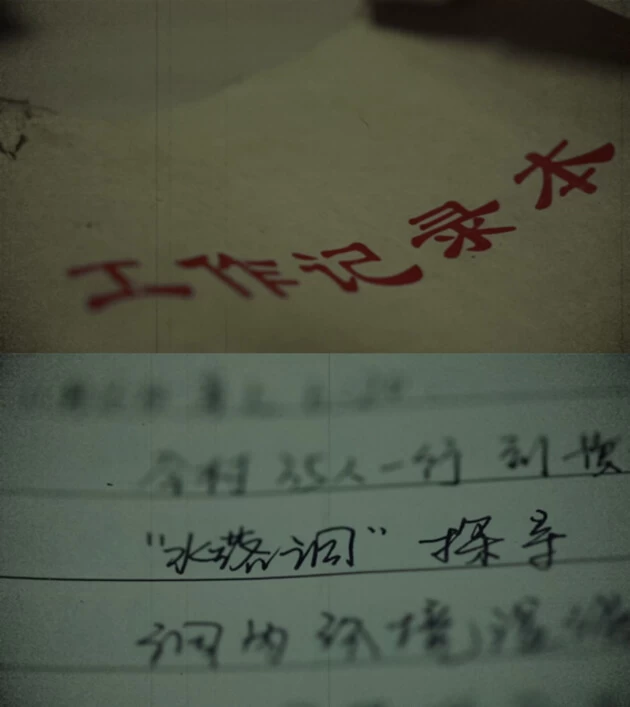 工作记录本
今村35人一行 到
“水落洞” 探寻
洞内环境湿